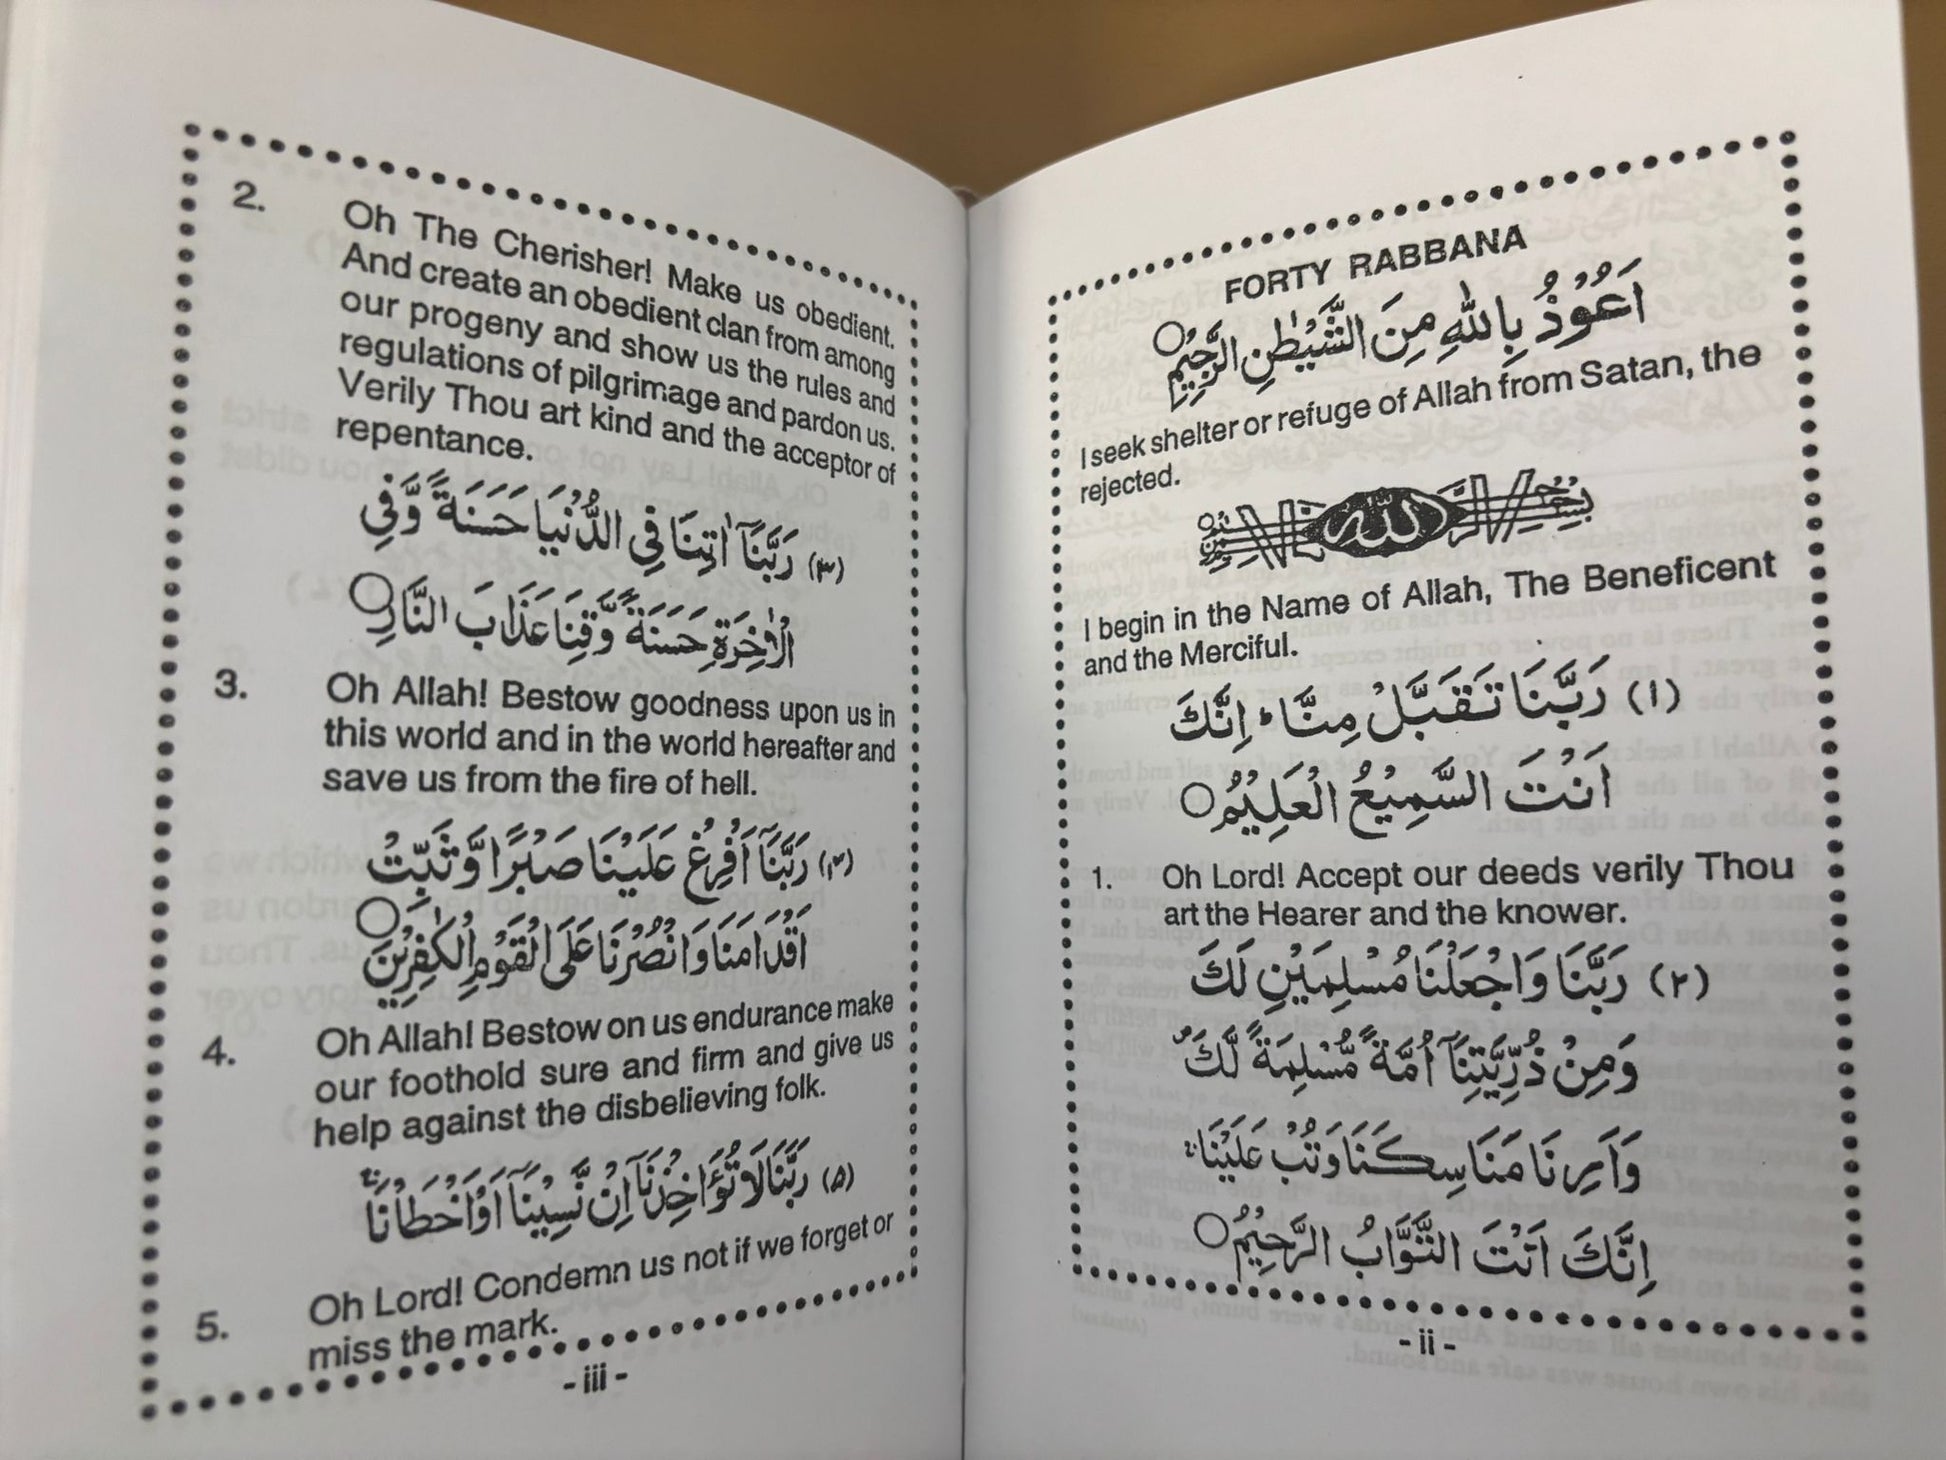 FORTY RABBANA
اَعُوْذُ بِاللّٰهِ مِنَ الشَّيْطٰنِ الرَّجِيْمِ
I seek shelter or refuge of Allah from Satan, the
rejected.
بِسْمِ اللّٰهِ الرَّحْمٰنِ الرَّحِيْمِ
I begin in the Name of Allah, The Beneficent
and the Merciful.
(۱) رَبَّنَا تَقَبَّلْ مِنَّا ؕ اِنَّكَ
اَنْتَ السَّمِيْعُ الْعَلِيْمُ
1. Oh Lord! Accept our deeds verily Thou
art the Hearer and the knower.
(۲) رَبَّنَا وَاجْعَلْنَا مُسْلِمَيْنِ لَكَ
وَمِنْ ذُرِّيَّتِنَآ اُمَّةً مُّسْلِمَةً لَّكَ
وَاَرِنَا مَنَاسِكَنَا وَتُبْ عَلَيْنَا
اِنَّكَ اَنْتَ التَّوَّابُ الرَّحِيْمُ
- ii -
2. Oh The Cherisher! Make us obedient.
And create an obedient clan from among
our progeny and show us the rules and
regulations of pilgrimage and pardon us.
Verily Thou art kind and the acceptor of
repentance.
(۳) رَبَّنَآ اٰتِنَا فِي الدُّنْيَا حَسَنَةً وَّفِي
الْاٰخِرَةِ حَسَنَةً وَّقِنَا عَذَابَ النَّارِ
3. Oh Allah! Bestow goodness upon us in
this world and in the world hereafter and
save us from the fire of hell.
(۴) رَبَّنَآ اَفْرِغْ عَلَيْنَا صَبْرًا وَّثَبِّتْ
اَقْدَامَنَا وَانْصُرْنَا عَلَى الْقَوْمِ الْكٰفِرِيْنَ
4. Oh Allah! Bestow on us endurance make
our foothold sure and firm and give us
help against the disbelieving folk.
(۵) رَبَّنَا لَا تُؤَاخِذْنَآ اِنْ نَّسِيْنَآ اَوْ اَخْطَاْنَا
5. Oh Lord! Condemn us not if we forget or
miss the mark.
- iii -